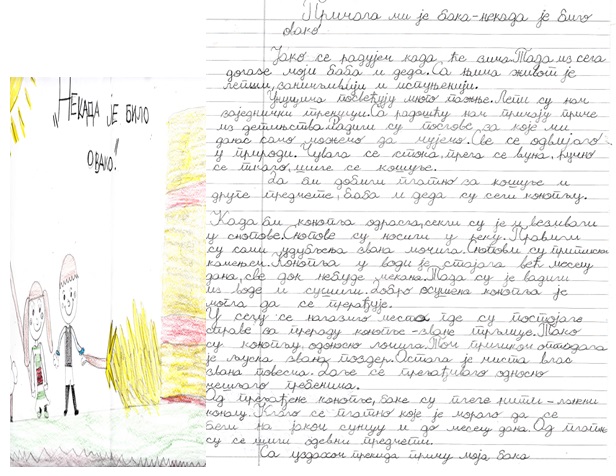 „НЕКАДА ЈЕ БИЛО
ОВАКО!"
Причала ми је бака - некада је било
овако
Јако се радујем када ће зима. Тада из села
долазе моји баба и деда. Са њима живот је
лепши, занимљивији и испуњенији.
Унуцима посвећују много пажње. Лепи су нам
заједнички тренуци. Са радошћу нам причају приче
из детињства. Радили су послове, за које ми
данас само можемо да чујемо. Све се одвијало
у природи. Чувала се стока, прела се вуна, ручно
се ткало, шиле се кошуље.
Да би добили платно за кошуље и
друге предмете, баба и деда су сели конопљу.
Када би конопља одрасла, секли су је и везивали
у снопове. Снопове су носили у реку. Правили
су сами удубљења звана мочила. Снопови су притискани
камењем. Конопља у води је стајала већ месец
дана, све док небуде мекана. Тада су је вадили
из воде и сушили. Добро осушена конопља је
могла да се прерађује.
У селу се налазило место где су постојале
справе за прераду конопље - зване трљице. Тако
су конопљу, односно ломила. Том приликом отпадала
је љуска звана поздер. Остала је чиста влас
звана повесма. Даље се прерађивало односно
чешљало гребенима.
Од прерађене конопље, баке су преле нити - ланени
конац. Ткало се платно које је морало да се
бели на јаком сунцу и до месец дана. Од платна
су се шили одевни предмети.
Са уздахом прекида причу моја бака